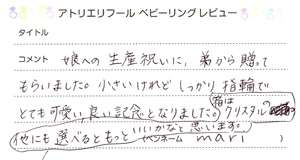 アトリエリフール ベビーリング レビュー
タイトル
コメント 娘への生産祝いに、弟から贈って
もらいました。小さいけれど しっかり指輪で
とても可愛い、良い記念となりました。箱は クリスタル?
他にも選べるともっといいかなと思います。
(ペンネーム mari )